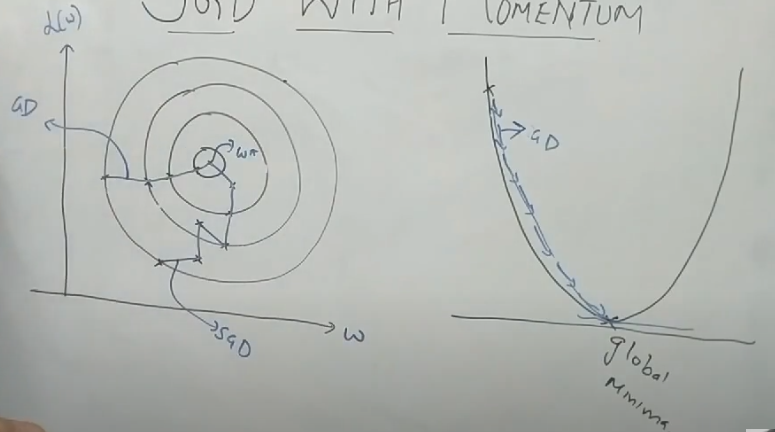 SGD WITH MOMENTUM
L(w)
GD
w*
SGD
w
GD
global
minima